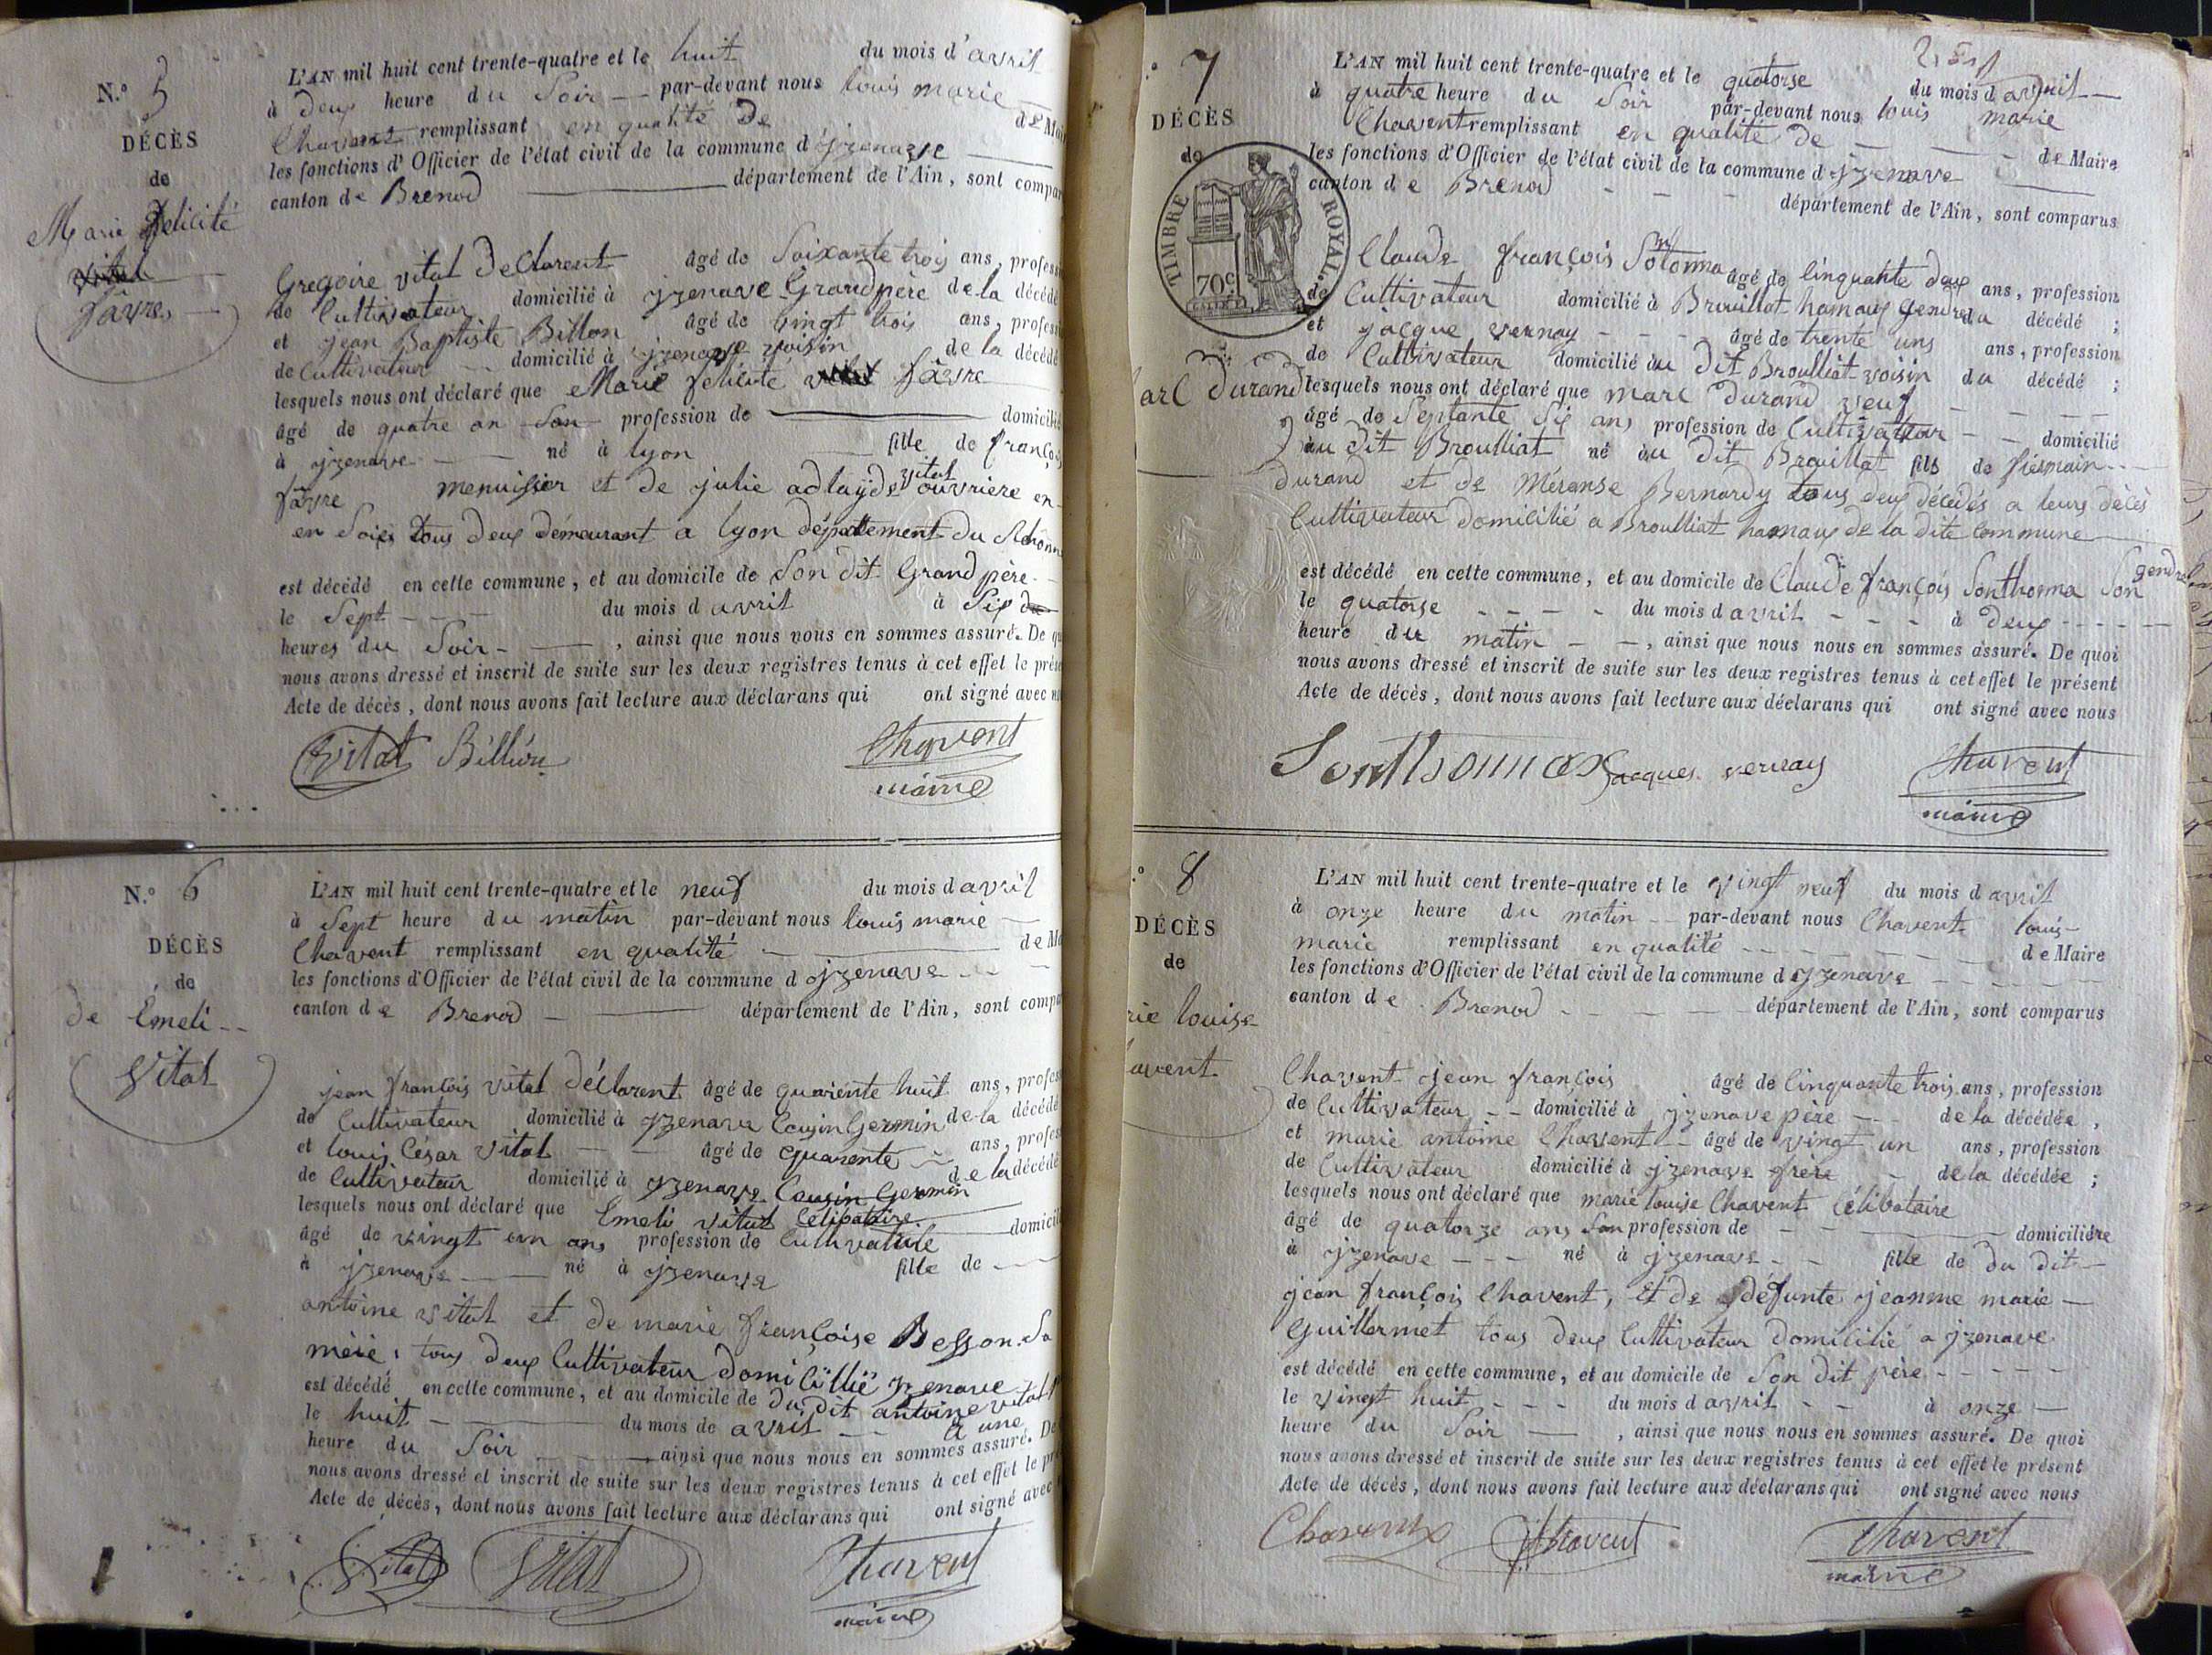 N.º 5
DÉCÈS
de
Marie félicité
vital
favre
L'AN mil huit cent trente-quatre et le huit du mois d'avril
à deux heure du Soir par-devant nous louis marie
Chavent remplissant en qualité de de Mai
les fonctions d'Officier de l'état civil de la commune d'jzenave
canton de Brenod département de l'Ain, sont compar
Gregoire vital declarent âgé de Soixante trois ans, profess
de Cultivateur domicilié à jzenave Grand père de la décédé
et jean Baptiste Billon âgé de vingt trois ans, profess
de Cultivateur domicilié à jzenave voisin de la décédé
lesquels nous ont déclaré que Marie félicité vital favre
âgé de quatre an San profession de domicilié
à jzenave né à lyon fille de françois
favre menuisier et de julie adlayde vital ouvriere en
en Soies tous deux demeurant a lyon département du Rhonne
est décédé en cette commune, et au domicile de Son dit Grand père
le Sept du mois d avril à Six du
heures du Soir , ainsi que nous nous en sommes assuré. De qu
nous avons dressé et inscrit de suite sur les deux registres tenus à cet effet le prése
Acte de décès, dont nous avons fait lecture aux déclarans qui ont signé avec no
Vital Billion Chavent
maire
N.º 6
DÉCÈS
de
de Emeli
Vital
L'AN mil huit cent trente-quatre et le neuf du mois d avril
à Sept heure du matin par-devant nous louis marie
Chavent remplissant en qualité de Ma
les fonctions d'Officier de l'état civil de la commune d jzenave
canton de Brenod département de l'Ain, sont compa
jean françois vital déclarent âgé de quarente huit ans, profes
de Cultivateur domicilié à jzenave Cousin Germin de la décédé
et louis César vital âgé de quarente ans, profes
de Cultivateur domicilié à jzenave Cousin Germin de la décédé
lesquels nous ont déclaré que Emeli vital Celibataire
âgé de vingt un ans profession de Cultivatule domicil
à jzenave né à jzenave fille de
antoine vital et de marie françoise Besson Sa
mère, tous deux Cultivateur domicillié jzenave
est décédé en cette commune, et au domicile de du dit antoine vital
le huit du mois de avril à une
heure du Soir , ainsi que nous nous en sommes assuré. De
nous avons dressé et inscrit de suite sur les deux registres tenus à cet effet le pré
Acte de décès, dont nous avons fait lecture aux déclarans qui ont signé avec
Vital Vital Chavent
maire
.º 7
DÉCÈS
de
TIMBRE ROYAL.
70c
arc durand
L'AN mil huit cent trente-quatre et le quatorse du mois d avril
à quatre heure du Soir par-devant nous louis marie
Chavent remplissant en qualité de de Maire
les fonctions d'Officier de l'état civil de la commune d jzenave
canton de Brenod département de l'Ain, sont comparus
Claude françois Sotonna âgé de Cinquante deux ans, profession
de Cultivateur domicilié à Brouillat hamaux Gendre du décédé ;
et jacque vernay âgé de trente uns ans, profession
de Cultivateur domicilié au dit Broulliat voisin du décédé ;
lesquels nous ont déclaré que marc durand veuf
âgé de Septante Six ans profession de Cultivateur domicilié
au dit Broulliat né au dit Brouillat fils de
durand et de Bernardy tous deux décédés a leurs décès
Cultivateur domicilié a Broulliat hamaux de la dite Commune
est décédé en cette commune, et au domicile de Claude françois Sonthonna Son gendre
le quatorse du mois d avril à deux
heure du matin , ainsi que nous nous en sommes assuré. De quoi
nous avons dressé et inscrit de suite sur les deux registres tenus à cet effet le présent
Acte de décès, dont nous avons fait lecture aux déclarans qui ont signé avec nous
Sonthonnax jacques vernay Chavent
maire
.º 8
DÉCÈS
de
rie louise
avent
L'AN mil huit cent trente-quatre et le vingt neuf du mois d avril
à onze heure du matin par-devant nous Chavent louis
marie remplissant en qualité de Maire
les fonctions d'Officier de l'état civil de la commune d jzenave
canton de Brenod département de l'Ain, sont comparus
Chavent jean françois âgé de Cinquante trois ans, profession
de Cultivateur domicilié à jzenave père de la décédée,
et marie antoine Chavent âgé de vingt un ans, profession
de Cultivateur domicilié à jzenave frère de la décédée ;
lesquels nous ont déclaré que marie louise Chavent Célibataire
âgé de quatorze ans San profession de domiciliére
à jzenave né à jzenave fille de du dit
jean françois Chavent, et de défunte jeanme marie
Guillermet tous deux Cultivateur domicilié a jzenave
est décédé en cette commune, et au domicile de Son dit père
le vingt huit du mois d avril à onze
heure du Soir , ainsi que nous nous en sommes assuré. De quoi
nous avons dressé et inscrit de suite sur les deux registres tenus à cet effet le présent
Acte de décès, dont nous avons fait lecture aux déclarans qui ont signé avec nous
Chavent Chavent Chavent
maire